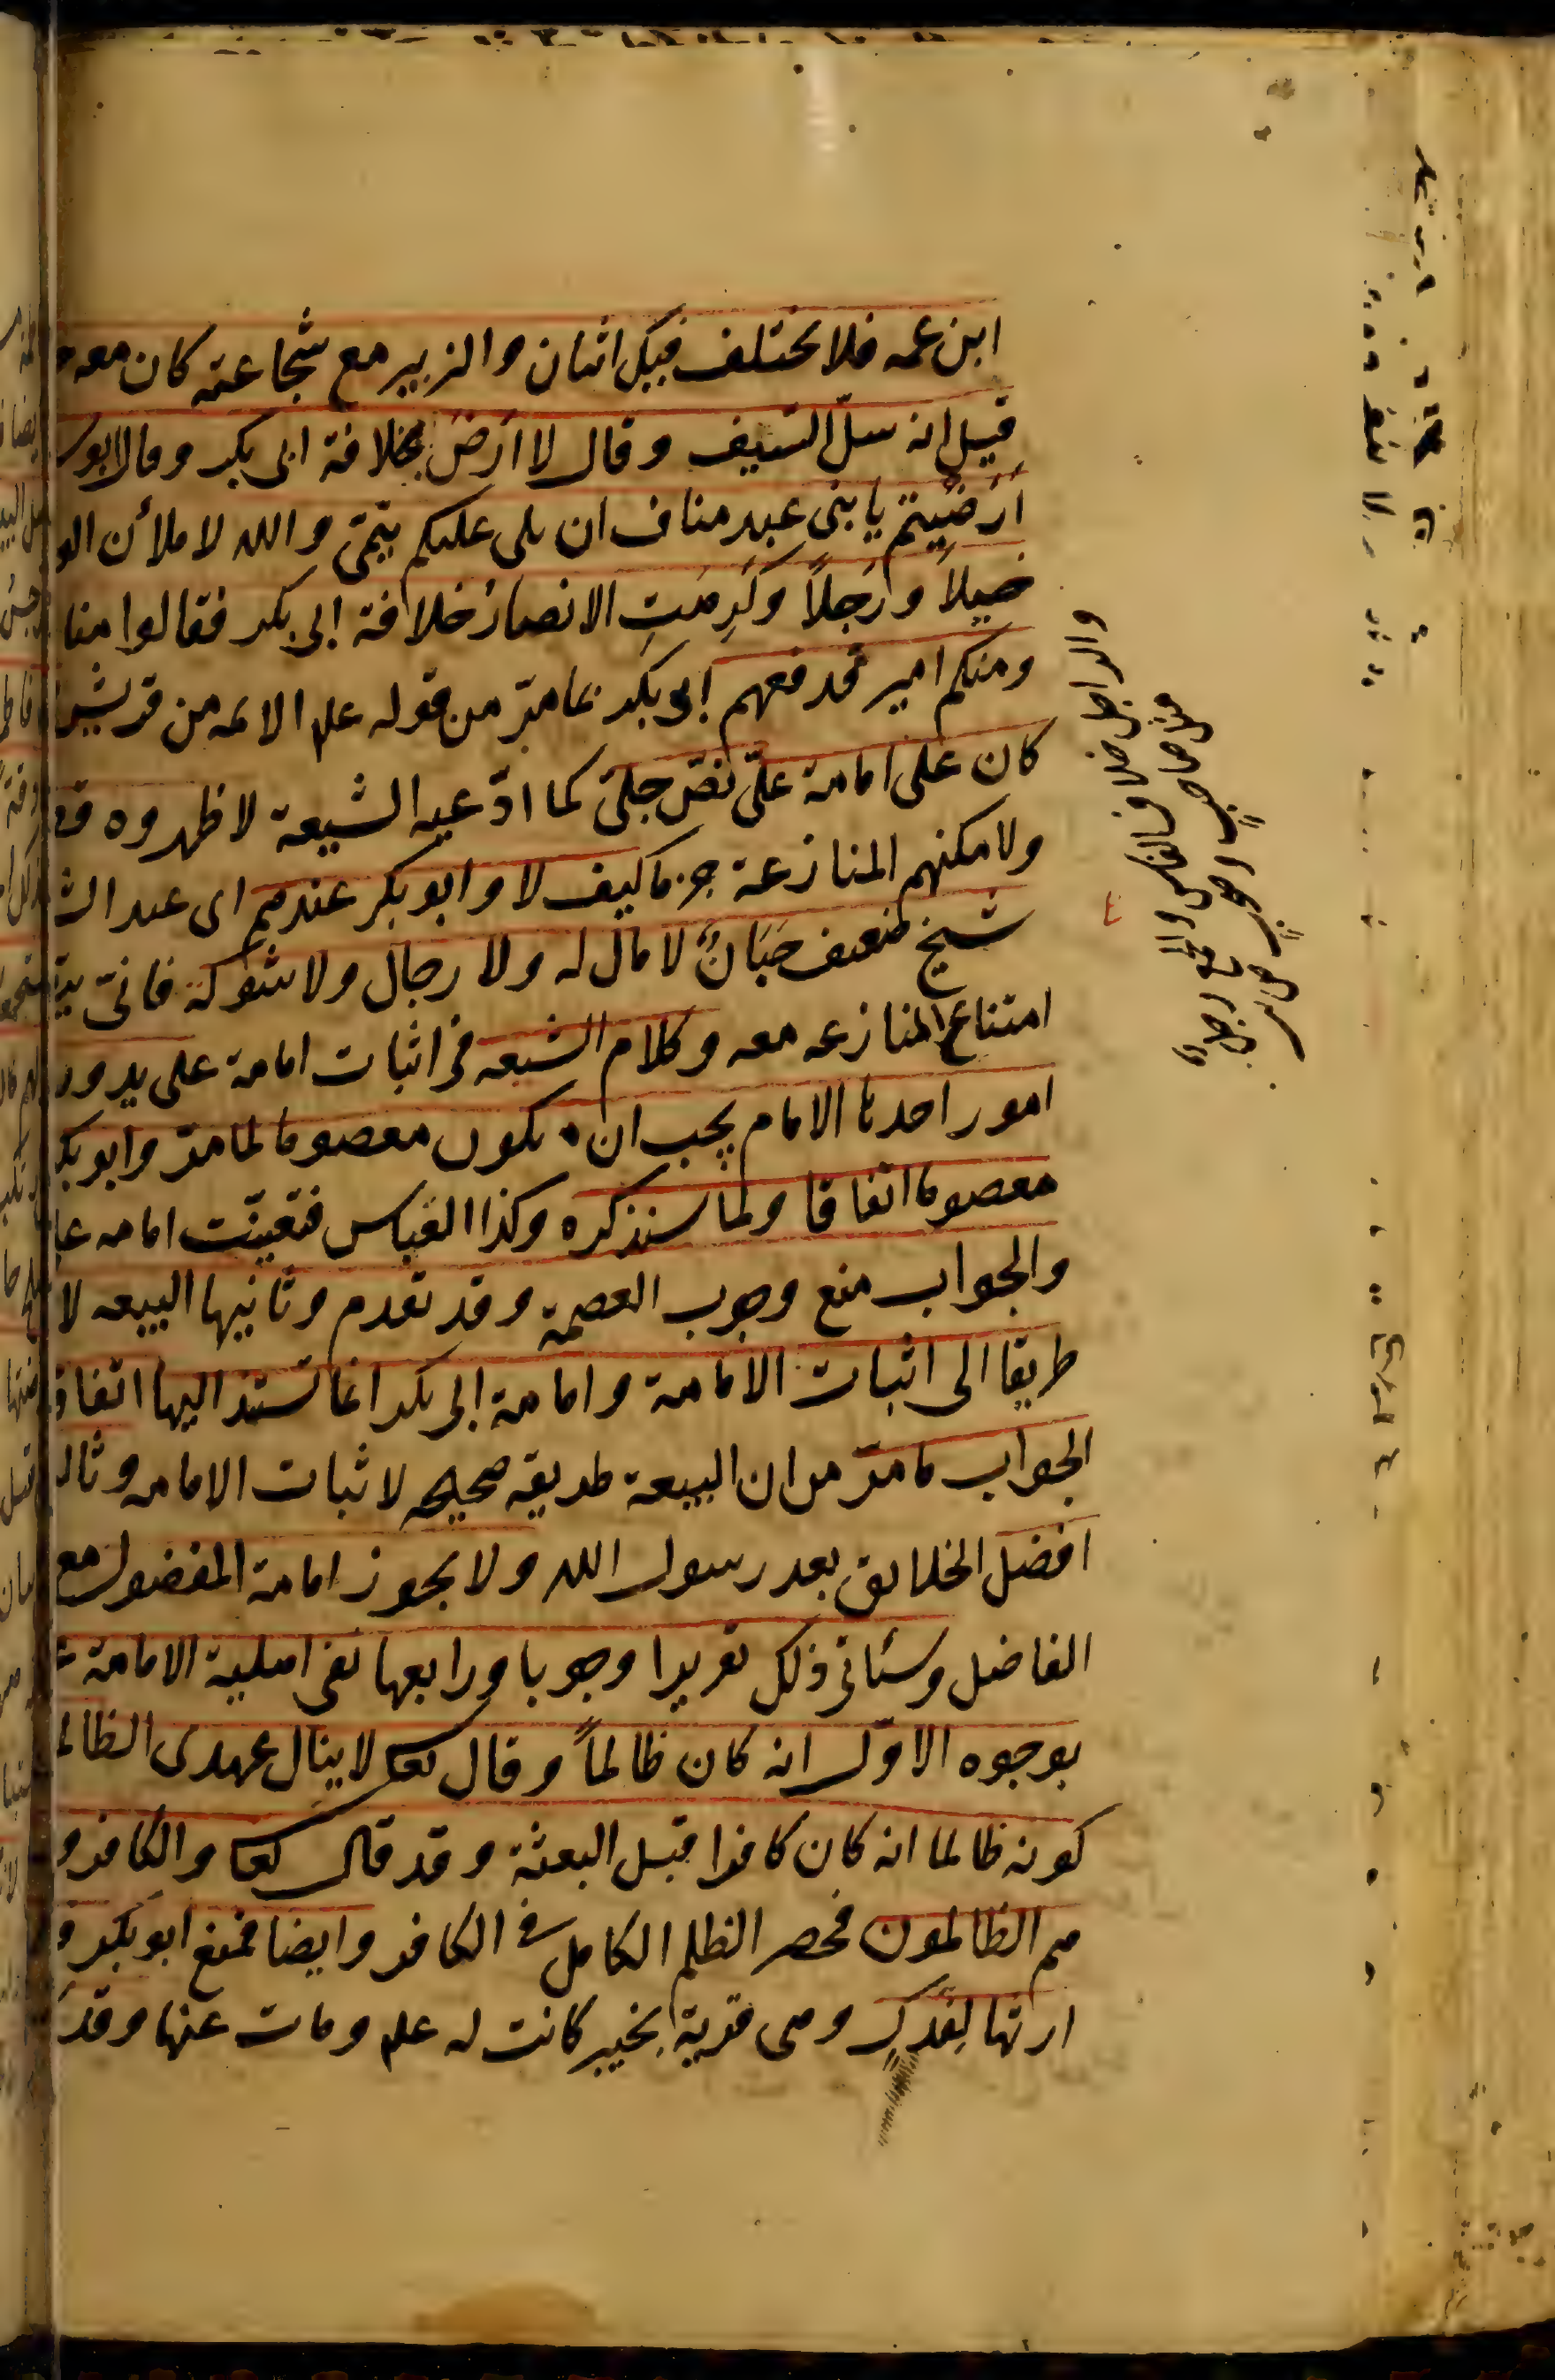 ابن عمه فلا يختلف فيك اثنان والزبير مع شجاعته كان معه
قيل انه سلّ السّيف وقال لا أرضَ بخلافة ابى بكر وقال ابو
أرضيتم يا بنى عبد مناف ان يلى عليكم تيمّى والله لاملأن الو
خيلاً وارَجلاً وكَرِهَتِ الانصارُ خلافة ابى بكر فقالوا منا
ومنكم امير فدفعهم ابو بكر بما مرّ من قوله علم الائمه من قريش
كان على امامة علىّ نصّ جلىّ كما ادّعيه الشيعة لاظهروه
ولامكنهم المنازعة جزما كيف لا وابو بكر عندهم اى عند
شيخ ضعيف جَبَانٌ لا مال له ولا رجال ولا شوكة فانىّ
امتناع المنازعه معه وكلام الشيعه فى اثبات امامة على يدور
امور احدها الامام يجب ان يكون معصوما لما مرّ وابو بكر
معصوما اتفاقا ولما سنذكره وكذا العباس فتعيّنت امامه
والجواب منع وجوب العصمة وقد تقدم وثانيها البيعه لا
طريقا الى اثبات الامامة وامامة ابى بكر انما تستند اليها اتفاقا
الجواب ما مرّ من ان البيعة طريقه صحيحه لاثبات الامامه وثال
افضل الخلايق بعد رسول الله ولا يجوز امامة المفضول مع
الفاضل وسئاتى ذلك تقريرا وجوبا ورابعها نفى اهلية الامامة
بوجوه الاوّل انه كان ظالماً وقال تعا لا ينال عهدى الظالم
كونه ظالما انه كان كافرا قبل البعثة وقد قال تعا والكافرو
هم الظالمون فحصر الظلم الكامل فى الكافر وايضا فمنع ابو بكر
ارثها لِفَدكٍ وهى قرية بخيبر كانت له علم ومات عنها وقد
والراجل خلاف الفارس والجمع رجلٌ
مثل صاحبٍ